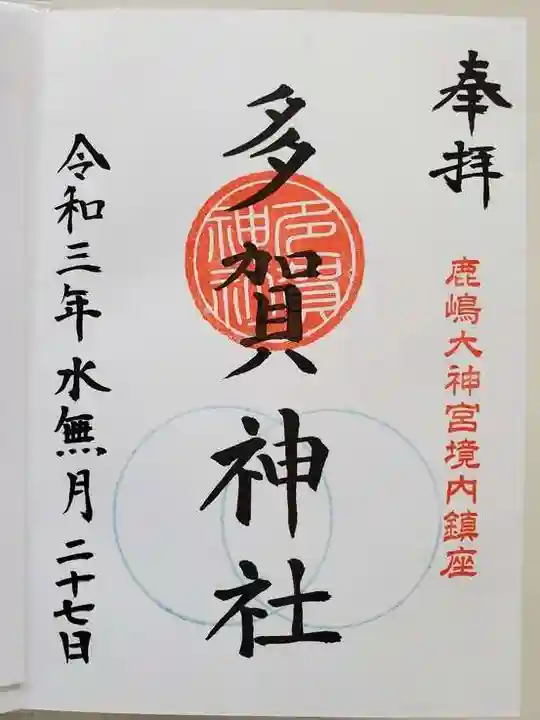 奉拝
鹿嶋大神宮境内鎮座
多賀神社
多賀神社
令和三年水無月二十七日